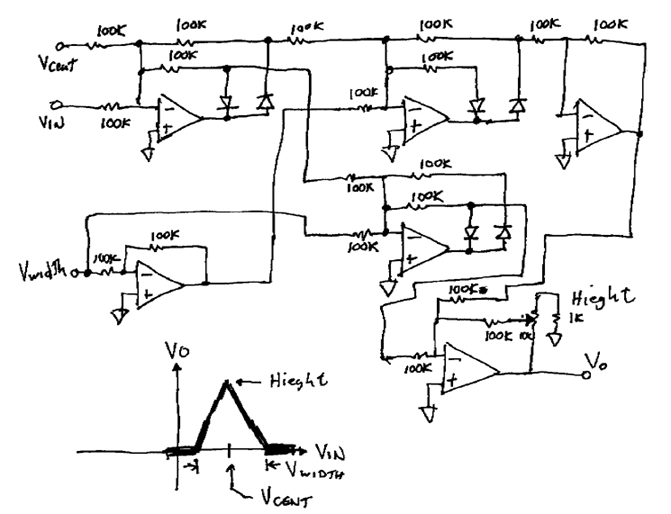 100K 100K 100K 100K 100K 100K
Vcent 100K 100K
VIN 100K 100K
- + - + - +
100K 100K
100K
100K 100K
Vwidth 100K - +
- +
100K Hieght
100K 10K 1K
100K - + Vo
Vo
Hieght
VIN
VWIDTH
VCENT